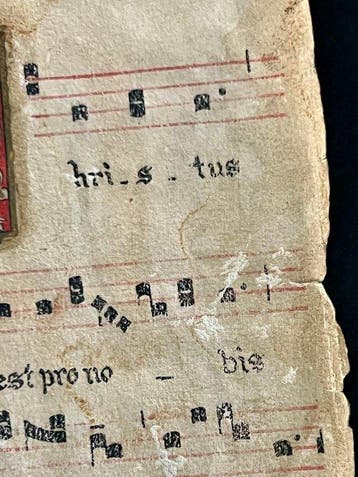 hri - s - tus
est pro no - bis